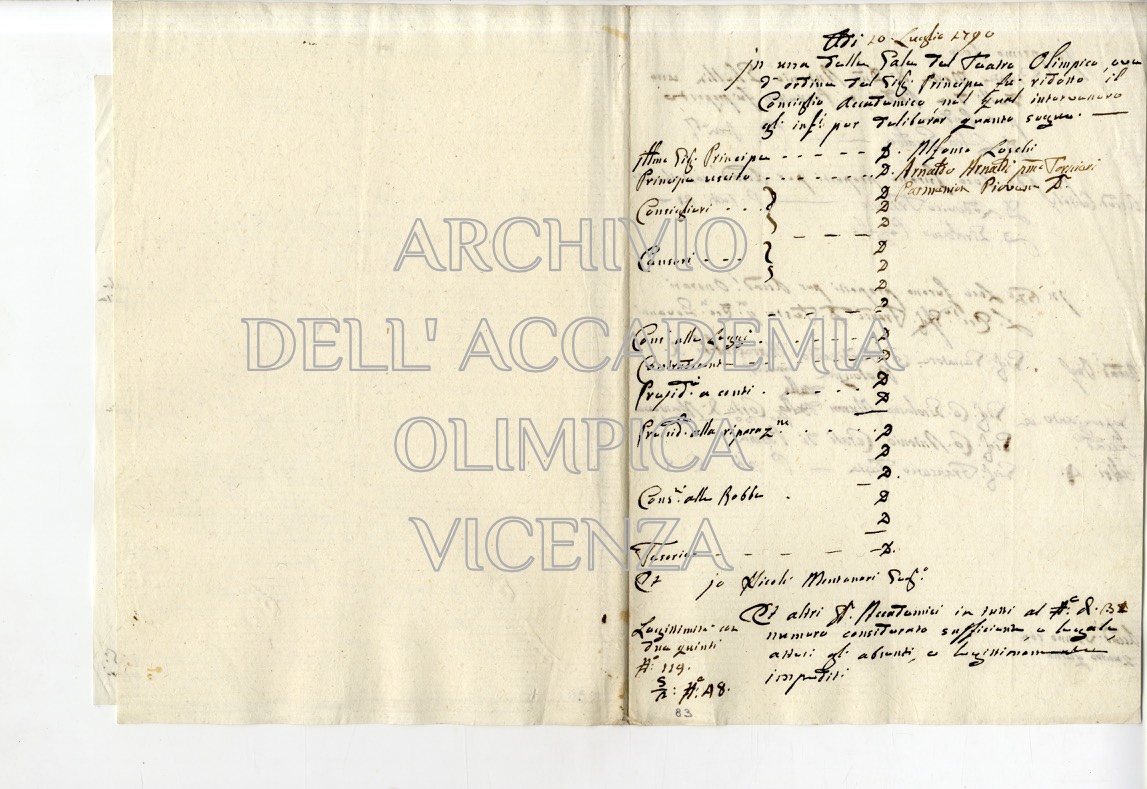 Adi 20. Luglio 1790
In una delle Sale del Teatro Olimpico, ove
d'ordine del Sig.r Principe fu ridotto il
Consiglio Accademico, nel qual intervennero
gl'inf.ti per deliberar quanto segue. —
Ill.mo Sig.r Principe - - - - - D. Alfonso Loschi
Principe uscito - - - - - - - D. Arnaldo Arnaldi p.mo Tornieri
D Parmenion Piovene D.
Consiglieri - - - D
D
- - - -
D
Censori - - - D
D
D
- - - - - -
Cons.i alle Leggi - - - - - - D
Contradicenti - - - - - - D
Presid.i a conti - - - D
D
Presid.i alla riparaz.ne - - - - D
D
D.
Cons.i alle Robbe - D
D
Tesorier - - - - - D.
Et io Nicolò Montanari Seg.o
Et altri S.ri Accademici in tutti al N.o di 31
numero considerato sufficiente e legale,
attesi gli absenti, e legittimamente
impediti
Legittimità con
due quinti
N.o 119.
2/5: N.o 48.
83
ARCHIVIO
DELL' ACCADEMIA
OLIMPICA
VICENZA